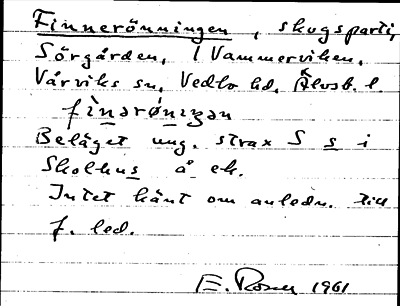 Finnerönningen, skogsparti,
Sörgården, 1 Vammerviken,
Vårviks sn, Vedbo hd, Älvsb. l.
fìnərǿniŋən
Beläget ung. strax S s i
Skolhus å ek.
Intet känt om anledn. till
f. led.
E. Rosen 1961